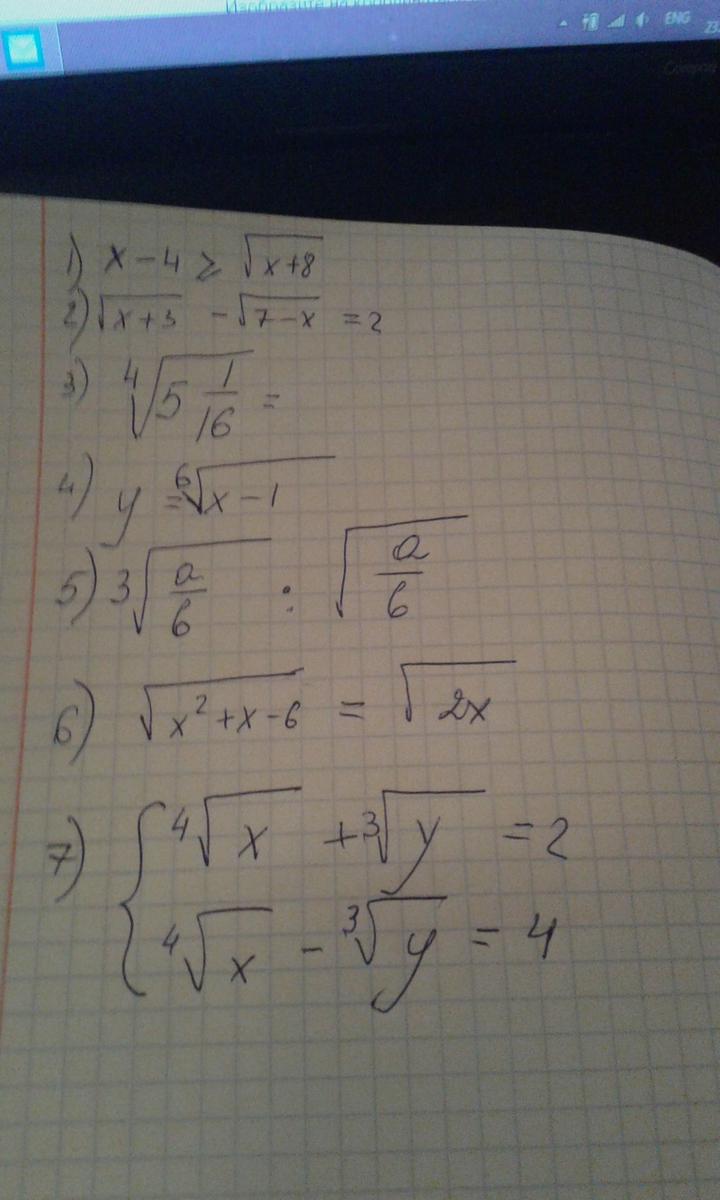 ENG
1) x - 4 ≥ √(x+8)
2) √(x+3) - √(7-x) = 2
3) ⁴√(5 1/16) =
4) y = ⁶√(x-1)
5) 3√(a/6) : √(a/6)
6) √(x²+x-6) = √(2x)
7) { ⁴√x + ³√y = 2
⁴√x - ³√y = 4